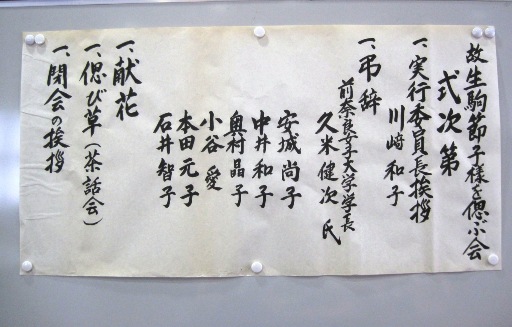 故生駒節子様を偲ぶ会
式次第
一、実行委員長挨拶
川﨑和子
一、弔辞
前奈良女子大学学長
久米健次氏
安城尚子
中井和子
奥村晶子
小谷愛
本田元子
石井智子
一、献花
一、偲び草(茶話会)
一、閉会の挨拶